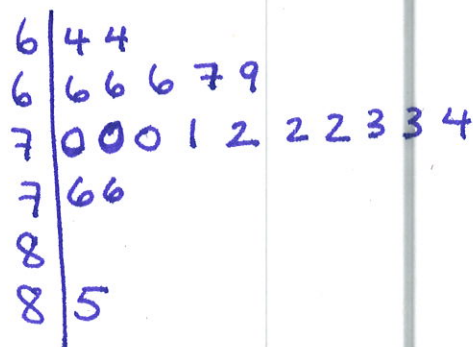 6 | 4 4
6 | 6 6 6 7 9
7 | 0 0 0 1 2 2 2 3 3 4
7 | 6 6
8 |
8 | 5